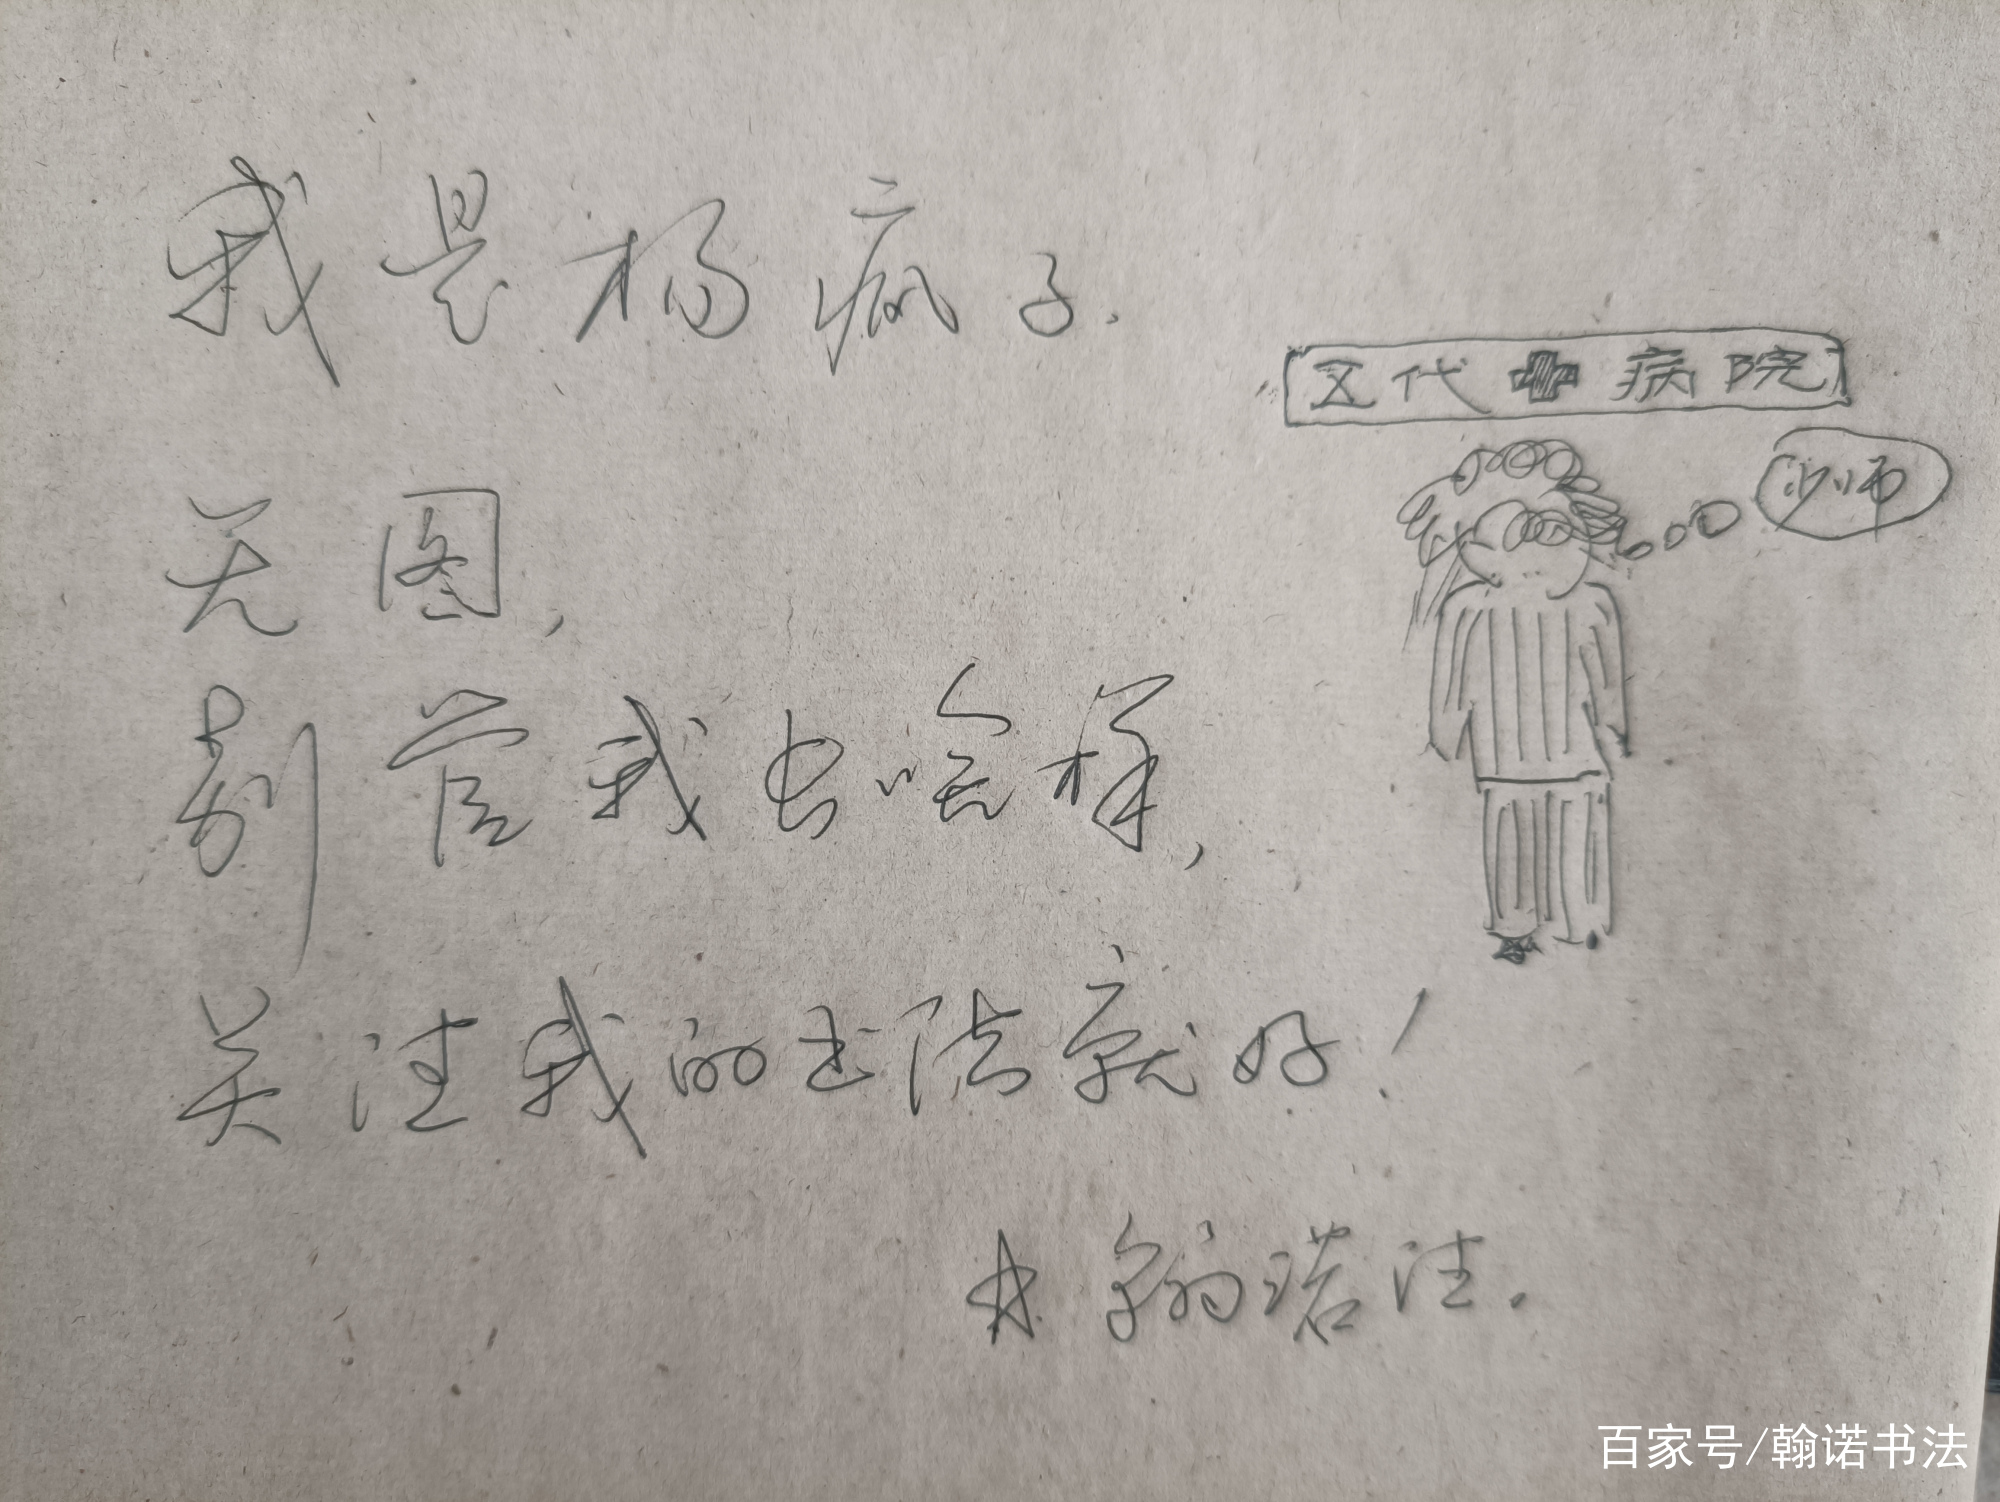 我是杨疯子.
五代✚病院
少师
无图,
别管我长啥样,
关注我的书法就好!
翰诺注.
百家号/翰诺书法